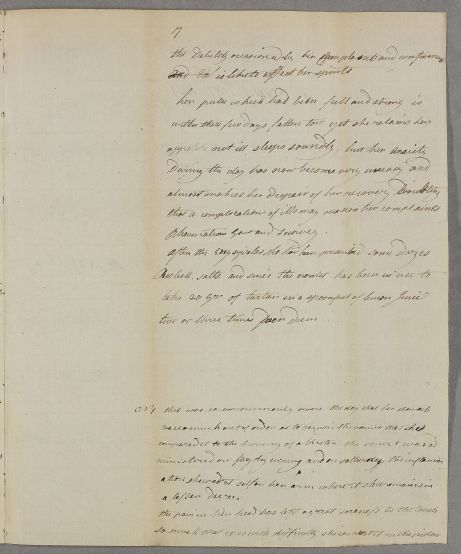 7
the Debility occasioned by her Complaints and confinement
and is liable to affect her spirits
her pulse which had been full and strong is
within these few days fallen too yet she retains her
appetite not ill sleeps soundly, but her anxiety
During the day has now become very uneasy and
almost makes her Despair of her recovery Doubtless
that a complication of ills may occasion her complaints
Rheumatism Gout and Scurvy.
after the Erysipelas, she has been prescribed some Dozes
salts and since the vomit has been in use to
take 20 Grs. of tartar in a spoonful of Lemon Juice
two or three times per Diem
this was so uncommonly severe the day that her stomach
was so much out of order as to require the vomit that she
compared it to the burning of a blister the vomit was ad
ministered on fryday evening and on saturday the inflamm
ation shewed itself on her arm where it still remains in
a lesser degree.
the pain in her head has left a great soreness to the touch
so much that it is with difficulty she can rest on the pillow